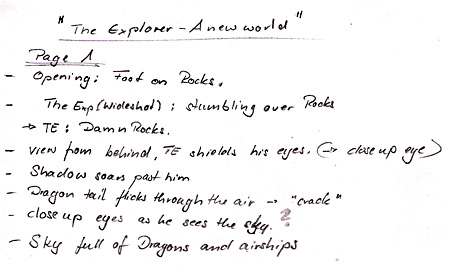 "The Explorer - A new world"
Page 1
- Opening: Foot on Rocks.
- The Exp (Wideshot): stumbling over Rocks
→ TE: Damn Rocks.
- view from behind, TE shields his eyes. (→ close up eye)
- Shadow soars past him
- Dragon tail flicks through the air → "crack"
- close up eyes as he sees the sky. ?
- Sky full of Dragons and airships